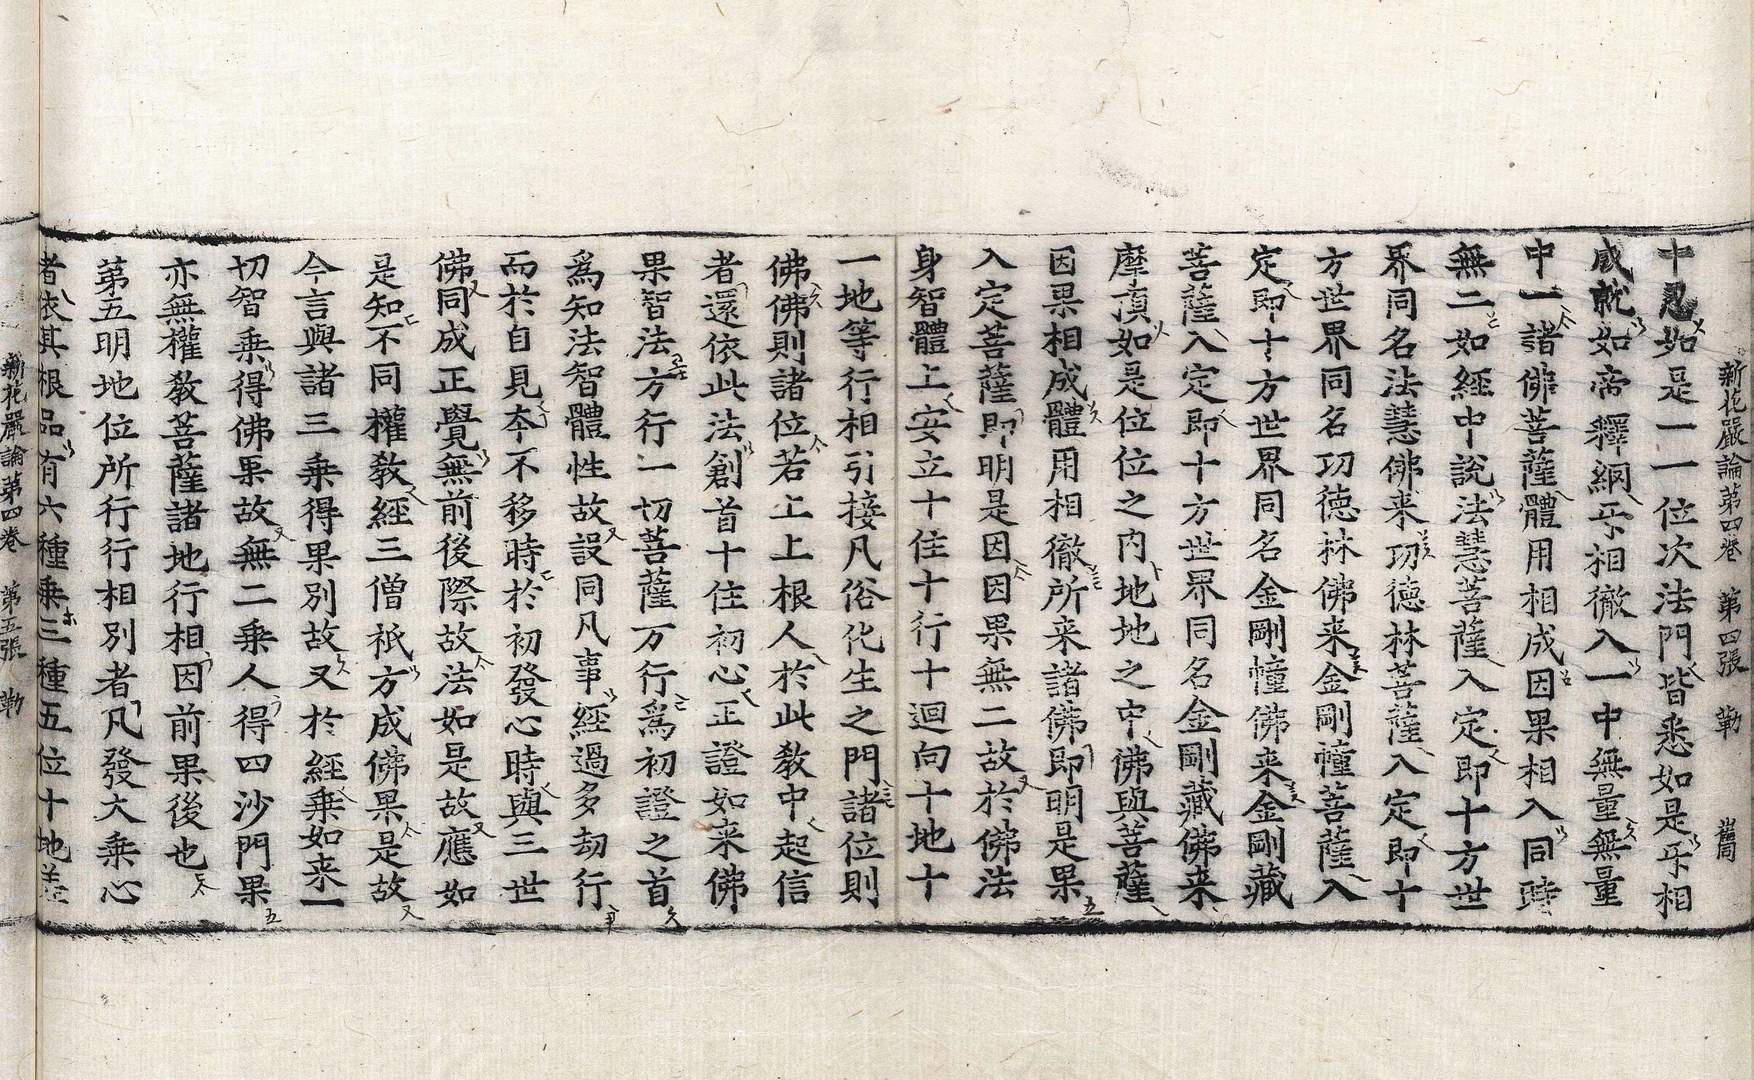 新花嚴論第四卷 第四張 勒
十忍如是一一位次法門皆悉如是乐相
成就如帝釋網乐相徹入一中無量無量
中一諸佛菩薩體用相成因果相入同時
無二如經中說法慧菩薩入定即十方世
界同名法慧佛来㓛德林菩薩入定即十
方世界同名㓛德林佛来金剛幢菩薩入
定即十方世界同名金剛幢佛来金剛藏
菩薩入定即十方世界同名金剛藏佛来
摩頂如是位位之內地地之中佛與菩薩
因果相成體用相徹所来諸佛即明是果
入定菩薩即明是因因果無二故於佛法
身智體上安立十住十行十迴向十地十
一地等行相引接凡俗化生之門諸位則
佛佛則諸位若上上根人於此教中起信
者還依此法創首十住初心正證如来佛
果智法方行一切菩薩万行爲初證之首
爲知法智體性故設同凡事經過多劫行
而於自見夲不移時於初發心時與三世
佛同成正覺無前後際故法如是故應如
是知不同權敎經三僧祇方成佛果是故
今言與諸三乗得果別故又於經乗如来一
切智乗得佛果故無二乗人得四沙門果
亦無權敎菩薩諸地行相因前果後也
第五明地位所行行相別者凡發大乗心
者依其根品有六種乗三種五位十地差
新花嚴論第四卷 第五張 勒